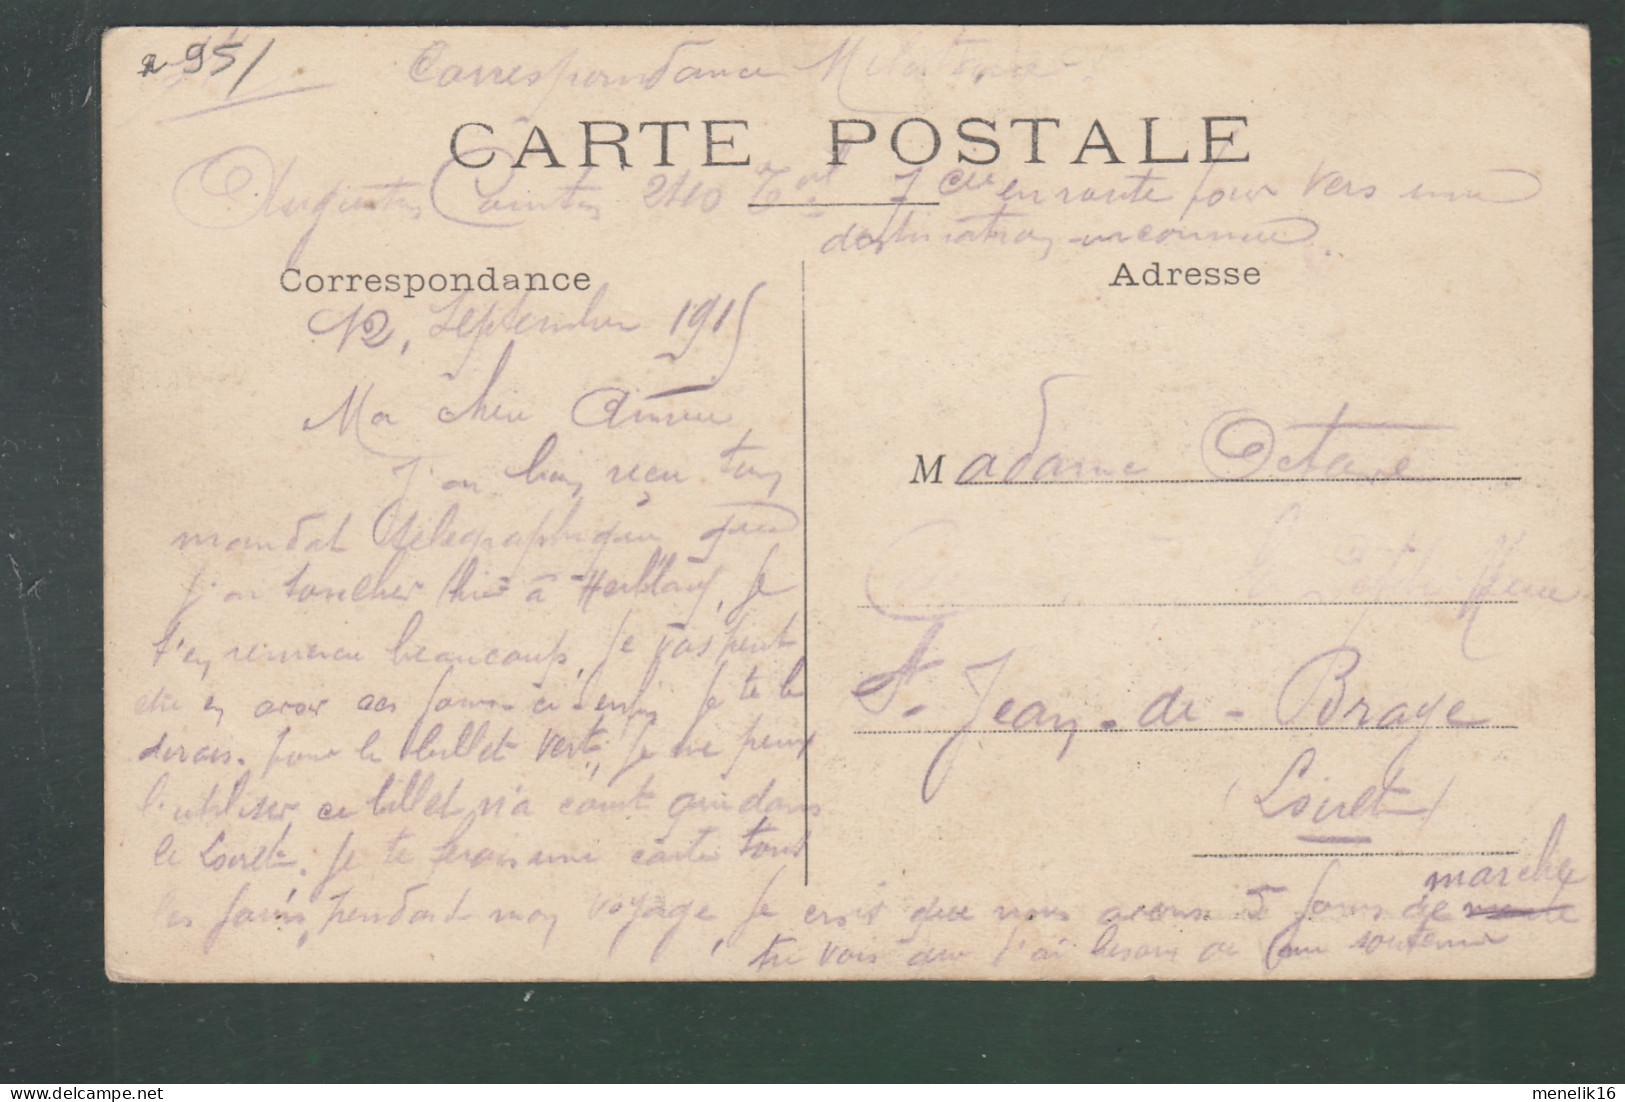 95/
Correspondance Militaire
CARTE POSTALE
Augustin 7 Cie en route pour vers une
destination inconnue.
Correspondance
Adresse
12, Septembre 1915
Ma chère Aimée
J'ai bien reçu ton
mandat télégraphique que
j'ai toucher hier à Je
t'en remercie beaucoup, je vas peut
etre en avoir ces jours-ci enfin je te le
dirais. pour le billet vert, je ne peux
l'utiliser ce billet n'a court que dans
le Loiret. Je te ferais une carte tous
les jours, pendant mon voyage, je crois que nous avons 5 jours de marche
tu vois que j'ai besoin de me soutenir
Madame Octave
St. Jean-de-Braye
(Loiret)
menelik16